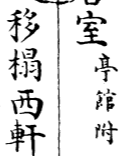 室亭館附
移榻西軒